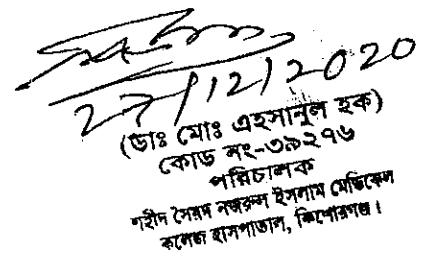 27/12/2020
(ডাঃ মোঃ এহসানুল হক)
কোড নং-৩৯২৭৬
পরিচালক
শহীদ সৈয়দ নজরুল ইসলাম মেডিকেল
কলেজ হাসপাতাল, কিশোরগঞ্জ।